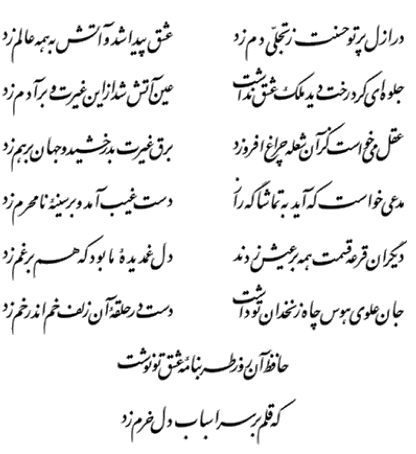 در ازل پرتو حسنت ز تجلی دم زد عشق پیدا شد و آتش به همه عالم زد
جلوه‌ای کرد رخت دید ملک عشق نداشت عین آتش شد از این غیرت و بر آدم زد
عقل می‌خواست کز آن شعله چراغ افروزد برق غیرت بدرخشید و جهان برهم زد
مدعی خواست که آید به تماشاگه راز دست غیب آمد و بر سینهٔ نامحرم زد
دیگران قرعه قسمت همه بر عیش زدند دل غمدیدهٔ ما بود که هم بر غم زد
جان علوی هوس چاه زنخدان تو داشت دست در حلقهٔ آن زلف خم اندر خم زد
حافظ آن روز طربنامهٔ عشق تو نوشت
که قلم بر سر اسباب دل خرم زد